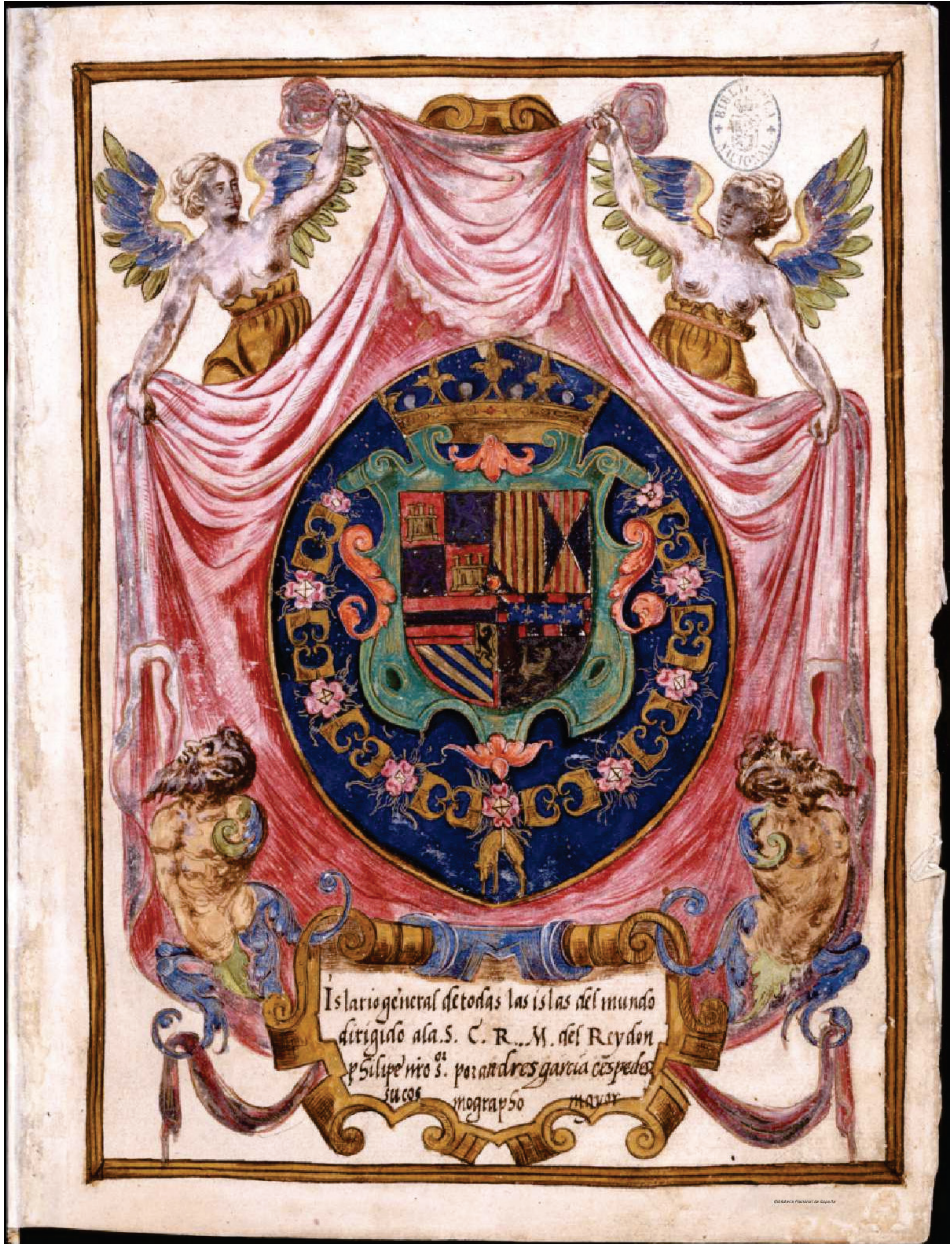 BIBLIOTECA
NACIONAL
Islario general de todas las islas del mundo
dirigido ala. S. C. R. M. del Rey don
philipe nro s.or por andres garcia cespedes
su cos mographo mayor
Biblioteca Nacional de España